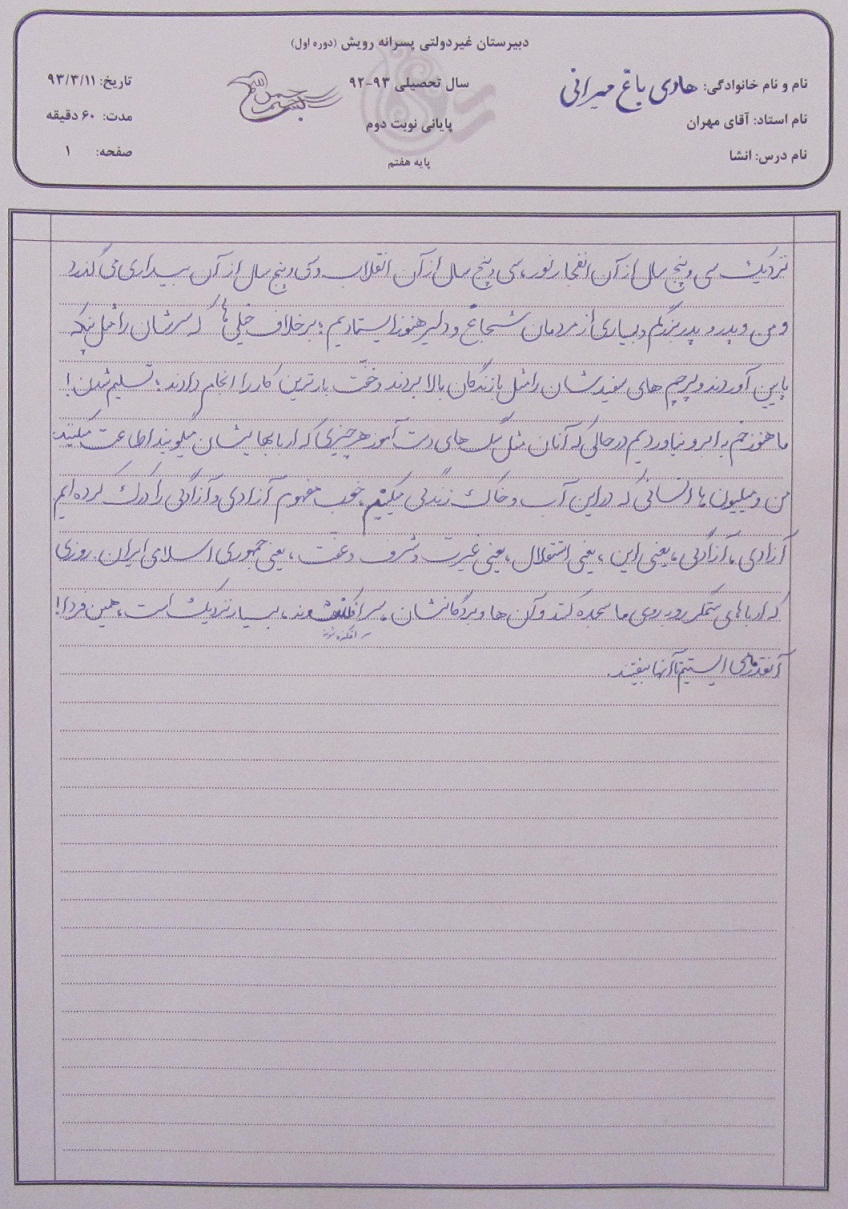 دبیرستان غیردولتی پسرانه رویش (دوره اول)
نام و نام خانوادگی: هادی باغ میرانی
سال تحصیلی ۹۳-۹۲
تاریخ: ۹۳/۳/۱۱
نام استاد: آقای مهران
پایانی نوبت دوم
مدت: ۶۰ دقیقه
نام درس: انشا
پایه هفتم
صفحه: ۱
نزدیک سی و پنج سال از آن انفجار نور، سی و پنج سال از آن انقلاب و سی و پنج سال از آن بیداری می گذرد
و من و پدر و پدربزرگم و بسیاری از مردمان شجاع و دلیر هنوز ایستادیم؛ برخلاف خیلی ها که سرشان را مثل
پایین آوردند و پرچم های سفیدشان را مثل بازندگان بالا بردند و خفت بارترین کار را انجام دادند؛ تسلیم شدن!
ما هنوز خم به ابرو نیاوردیم درحالی که آنان مثل سگ های دست آموز هرچیزی که اربابهایشان میگویند اطاعت میکنند.
من و میلیون ها انسانی که در این آب و خاک زندگی میکنیم خوب مفهوم آزادی و آزادگی را درک کرده ایم
آزادی، آزادگی، یعنی این، یعنی استقلال، یعنی غیرت و شرف و عفت، یعنی جمهوری اسلامی ایران. روزی
که ارباهای ستمگر رو به روی ما سجده کنند و آن ها و بردگانشان، سرافکنده شوند، بسیار نزدیک است، همین فردا!
سرافکنده شوند
آنقدر می ایستیم تا آنها بیفتند.